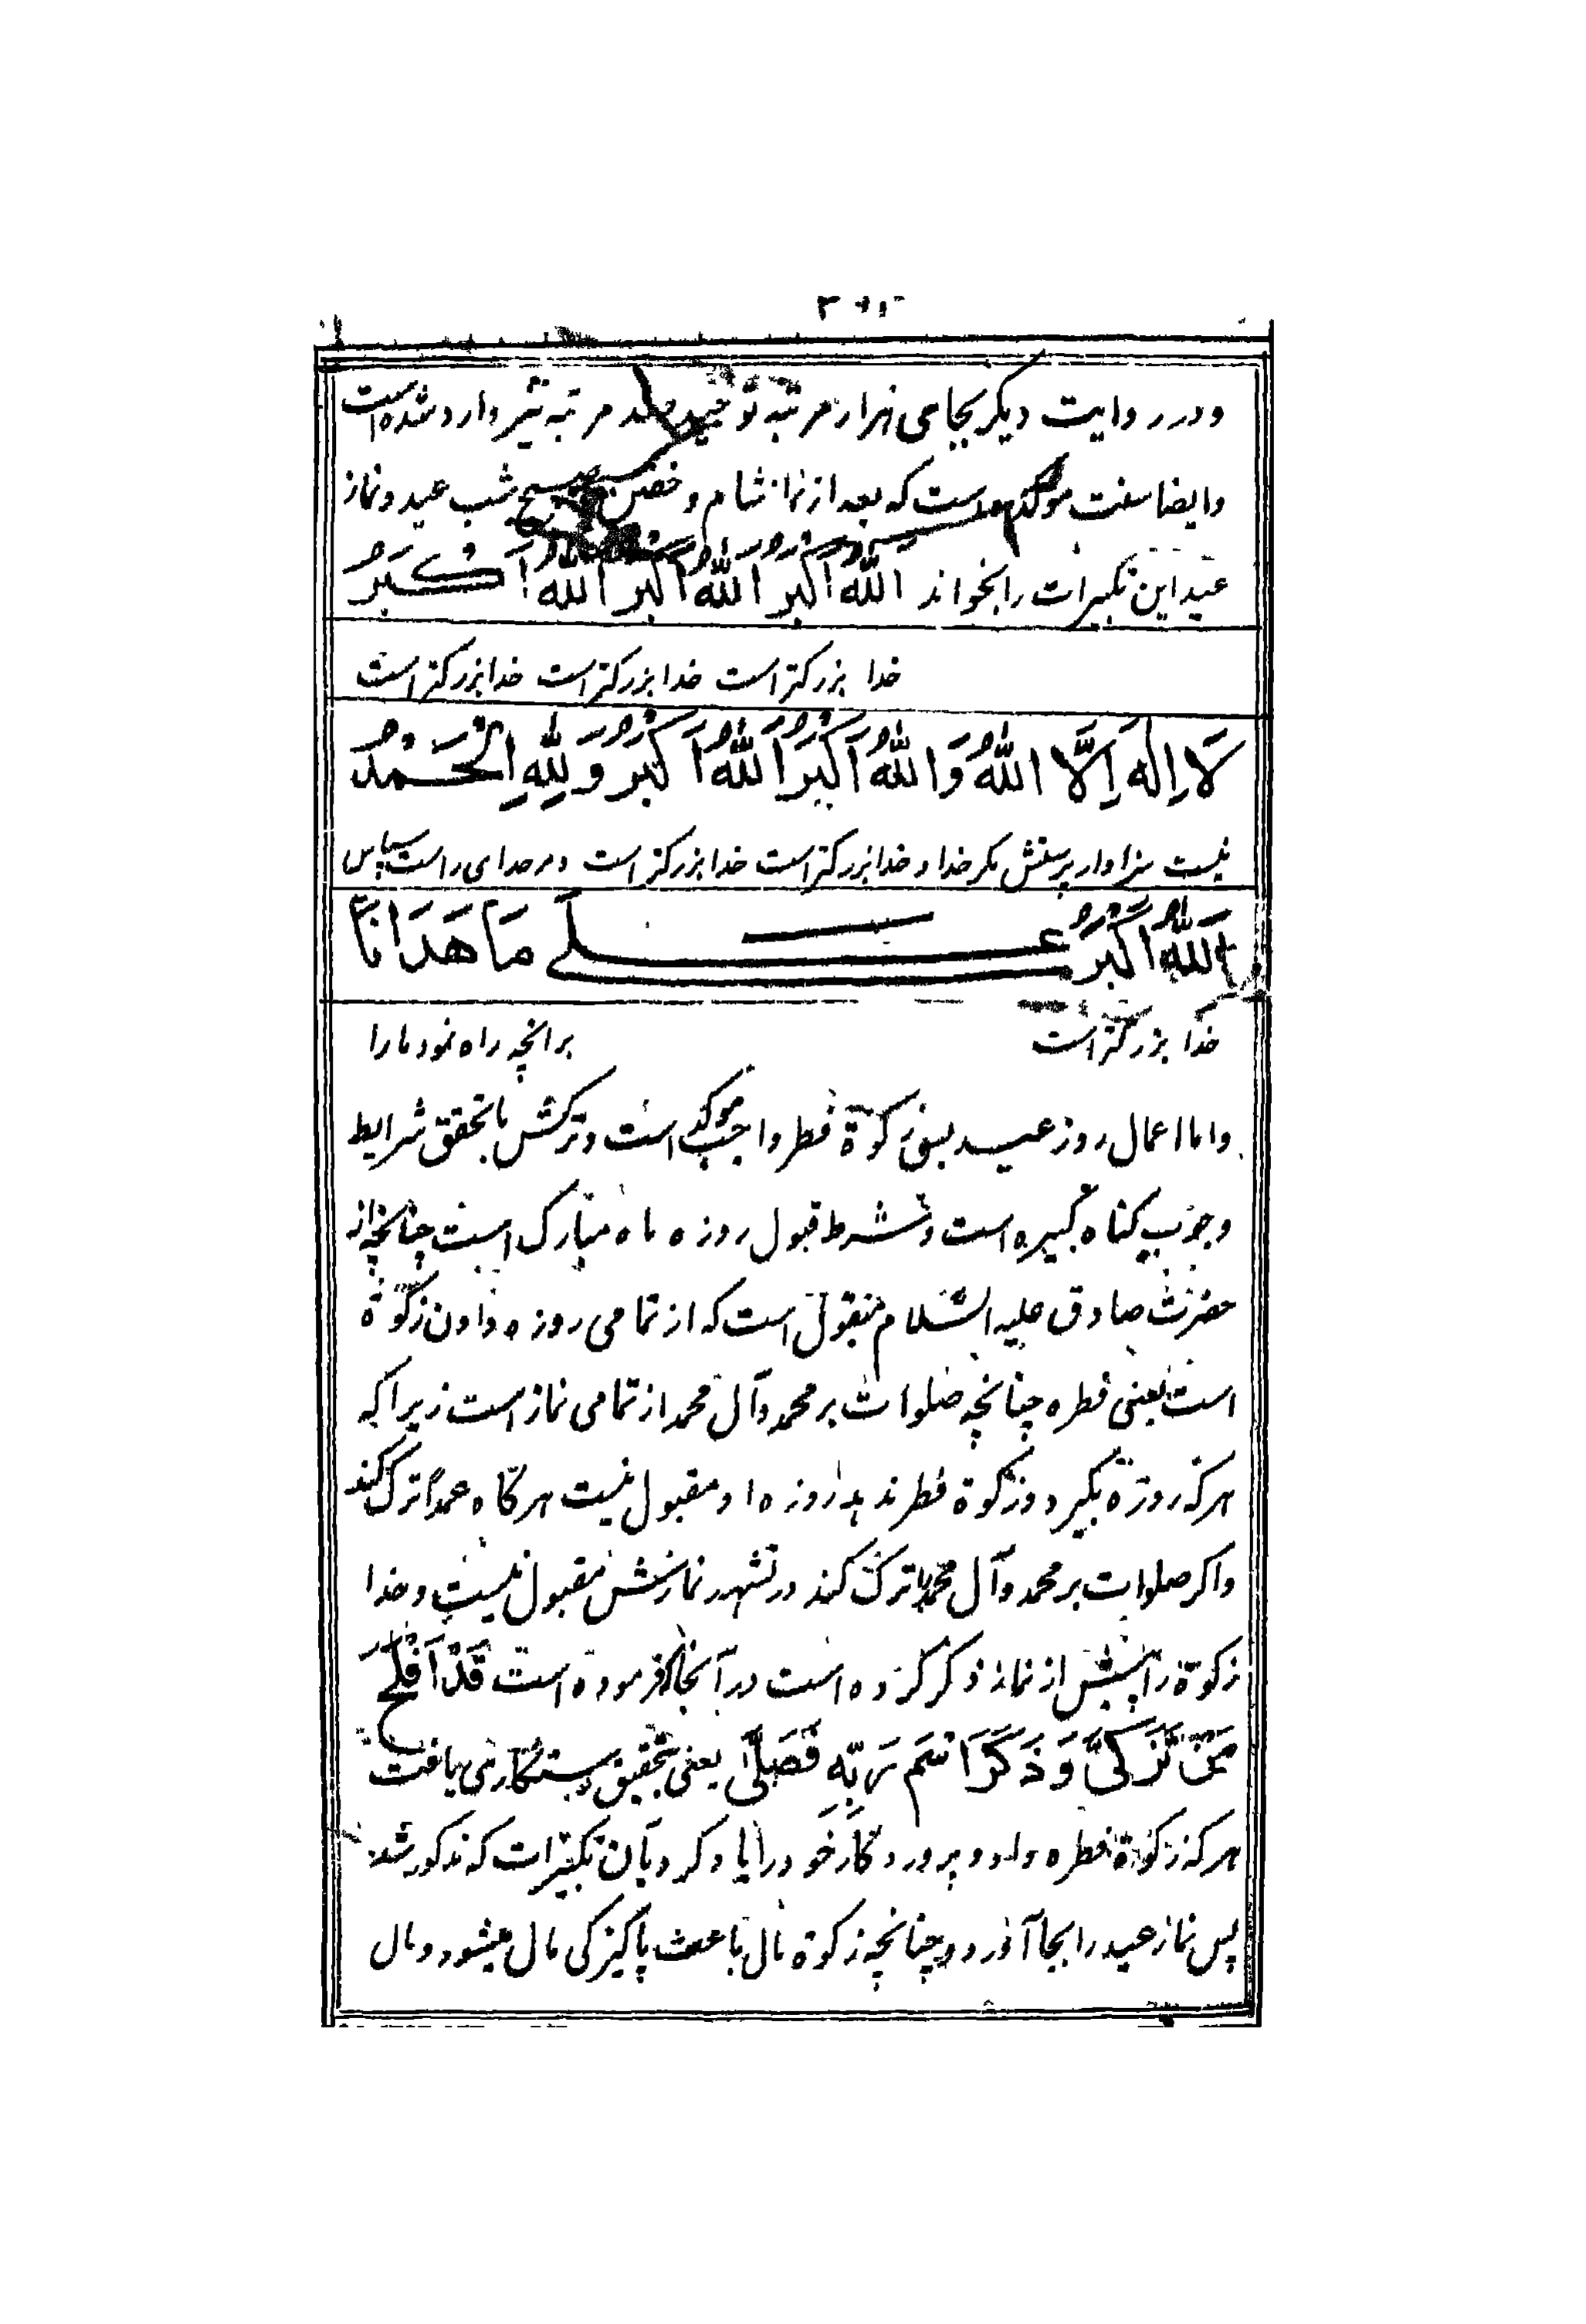 ودر روایت دیگر بجای هزار مرتبه توحید صد مرتبه نیز وارد شده است
وایضا سنت موکد است که بعد از نماز شام و خفتن و صبح شب عید و نماز
عید این تکبیرات را بخواند اَللّٰهُ اَکْبَرُ اَللّٰهُ اَکْبَرُ اَللّٰهُ اَکْبَرُ
خدا بزرکتر است خدا بزرکتر است خدا بزرکتر است
لَا اِلٰهَ اِلَّا اللّٰهُ وَاللّٰهُ اَکْبَرُ اَللّٰهُ اَکْبَرُ وَلِلّٰهِ الْحَمْدُ
نیست سزاوار پرستش مکر خدا و خدا بزرکتر است خدا بزرکتر است و مر خدای راست سپاس
اَللّٰهُ اَکْبَرُ عَلٰی مَا هَدَانَا
خدا بزرکتر است برانچه راه نمود مارا
واما اعمال روز عید پس زکوة فطر واجب موکد است و ترکش با تحقق شرایط
وجوب کناه کبیره است و شرط قبول روزه ماه مبارک است چنانچه از
حضرت صادق علیه السلام منقول است که از تمامی روزه دادن زکوة
است یعنی فطره چنانچه صلوات بر محمد وآل محمد از تمامی نماز است زیرا که
هر که روزه بگیرد و زکوة فطر ندهد روزه او مقبول نیست هر کاه عمداً ترک کند
واکر صلوات بر محمد وآل محمد را ترک کند در تشهد نمازش مقبول نیست و خدا
زکوة را پیش از نماز ذکر کرده است در آنجا که فرموده است قَدْ اَفْلَحَ
مَنْ تَزَکّٰی وَذَکَرَ اسْمَ رَبِّهِ فَصَلّٰی یعنی بتحقیق رستکاری یافت
هر که زکوة فطره داد و پروردکار خود را یاد کرد بآن تکبیرات که مذکور شد
پس نماز عید را بجا آورد و چنانچه زکوة مال باعث پاکیزکی مال میشود و مال